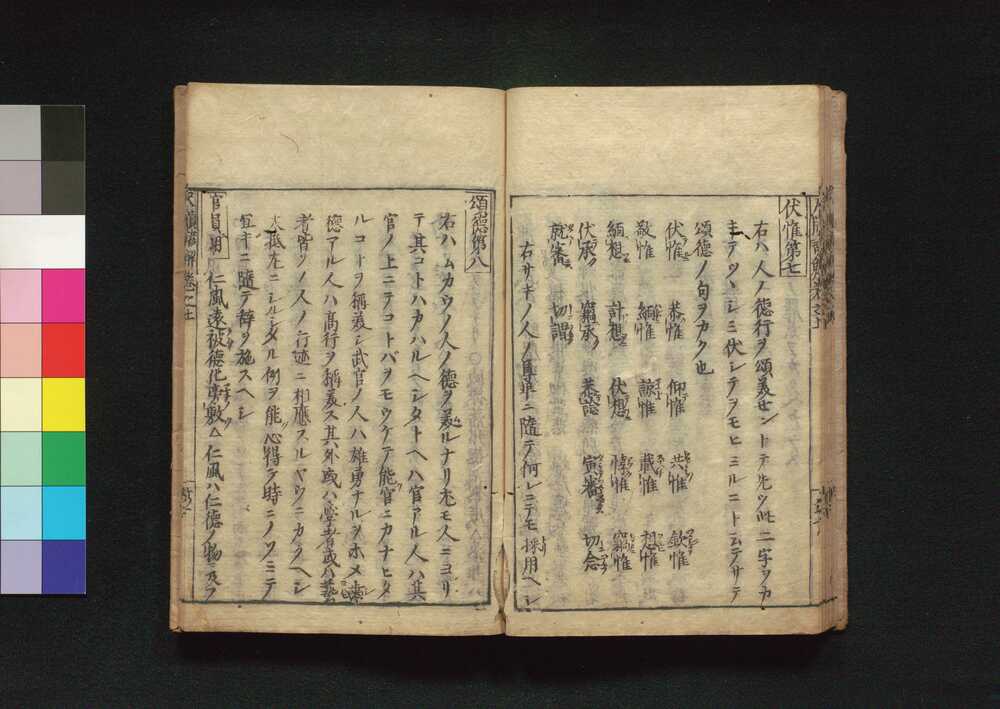 伏惟第七
右ハ人ノ徳行ヲ頌美セントテ先ツ此二字ヲカ
シミ伏シテヲモヒミルニト
頌徳ノ句ヲカク也
伏惟 恭惟 仰惟 共惟 欽惟
敬惟 緬惟 諒惟 蔵惟 想惟
緬想 計想 伏想 惟 窮惟
伏承 窮承 恭諗 寅審 切念
就審 切謂
右サキノ人ノ尊卑ニ随テ何レニテモ採用ヘシ
頌徳第八
右ハムカウノ人ノ徳ヲ美ルナリ尤モ人ニヨリ
テ其コトハカハルヘシタトヘハ官アル人ハ其
官ノ上ニテコトバヲモウケテ能官ニカナヒタ
ルコトヲ称美シ武官ノ人ハ雄勇ナルヲホメ
徳アル人ハ高行ヲ称義ス其外或ハ学者或ハ藝
者皆ソノ人ノ行迹ニ相應スルヤウニカクヘシ
大抵左ニシルシタル例ヲ能心得テ時ニノソミテ
宜キニ随テ辞ヲ施スヘシ
官員用 仁風遠被徳化亭敷△仁風ハ仁徳ノ物ニ及フ